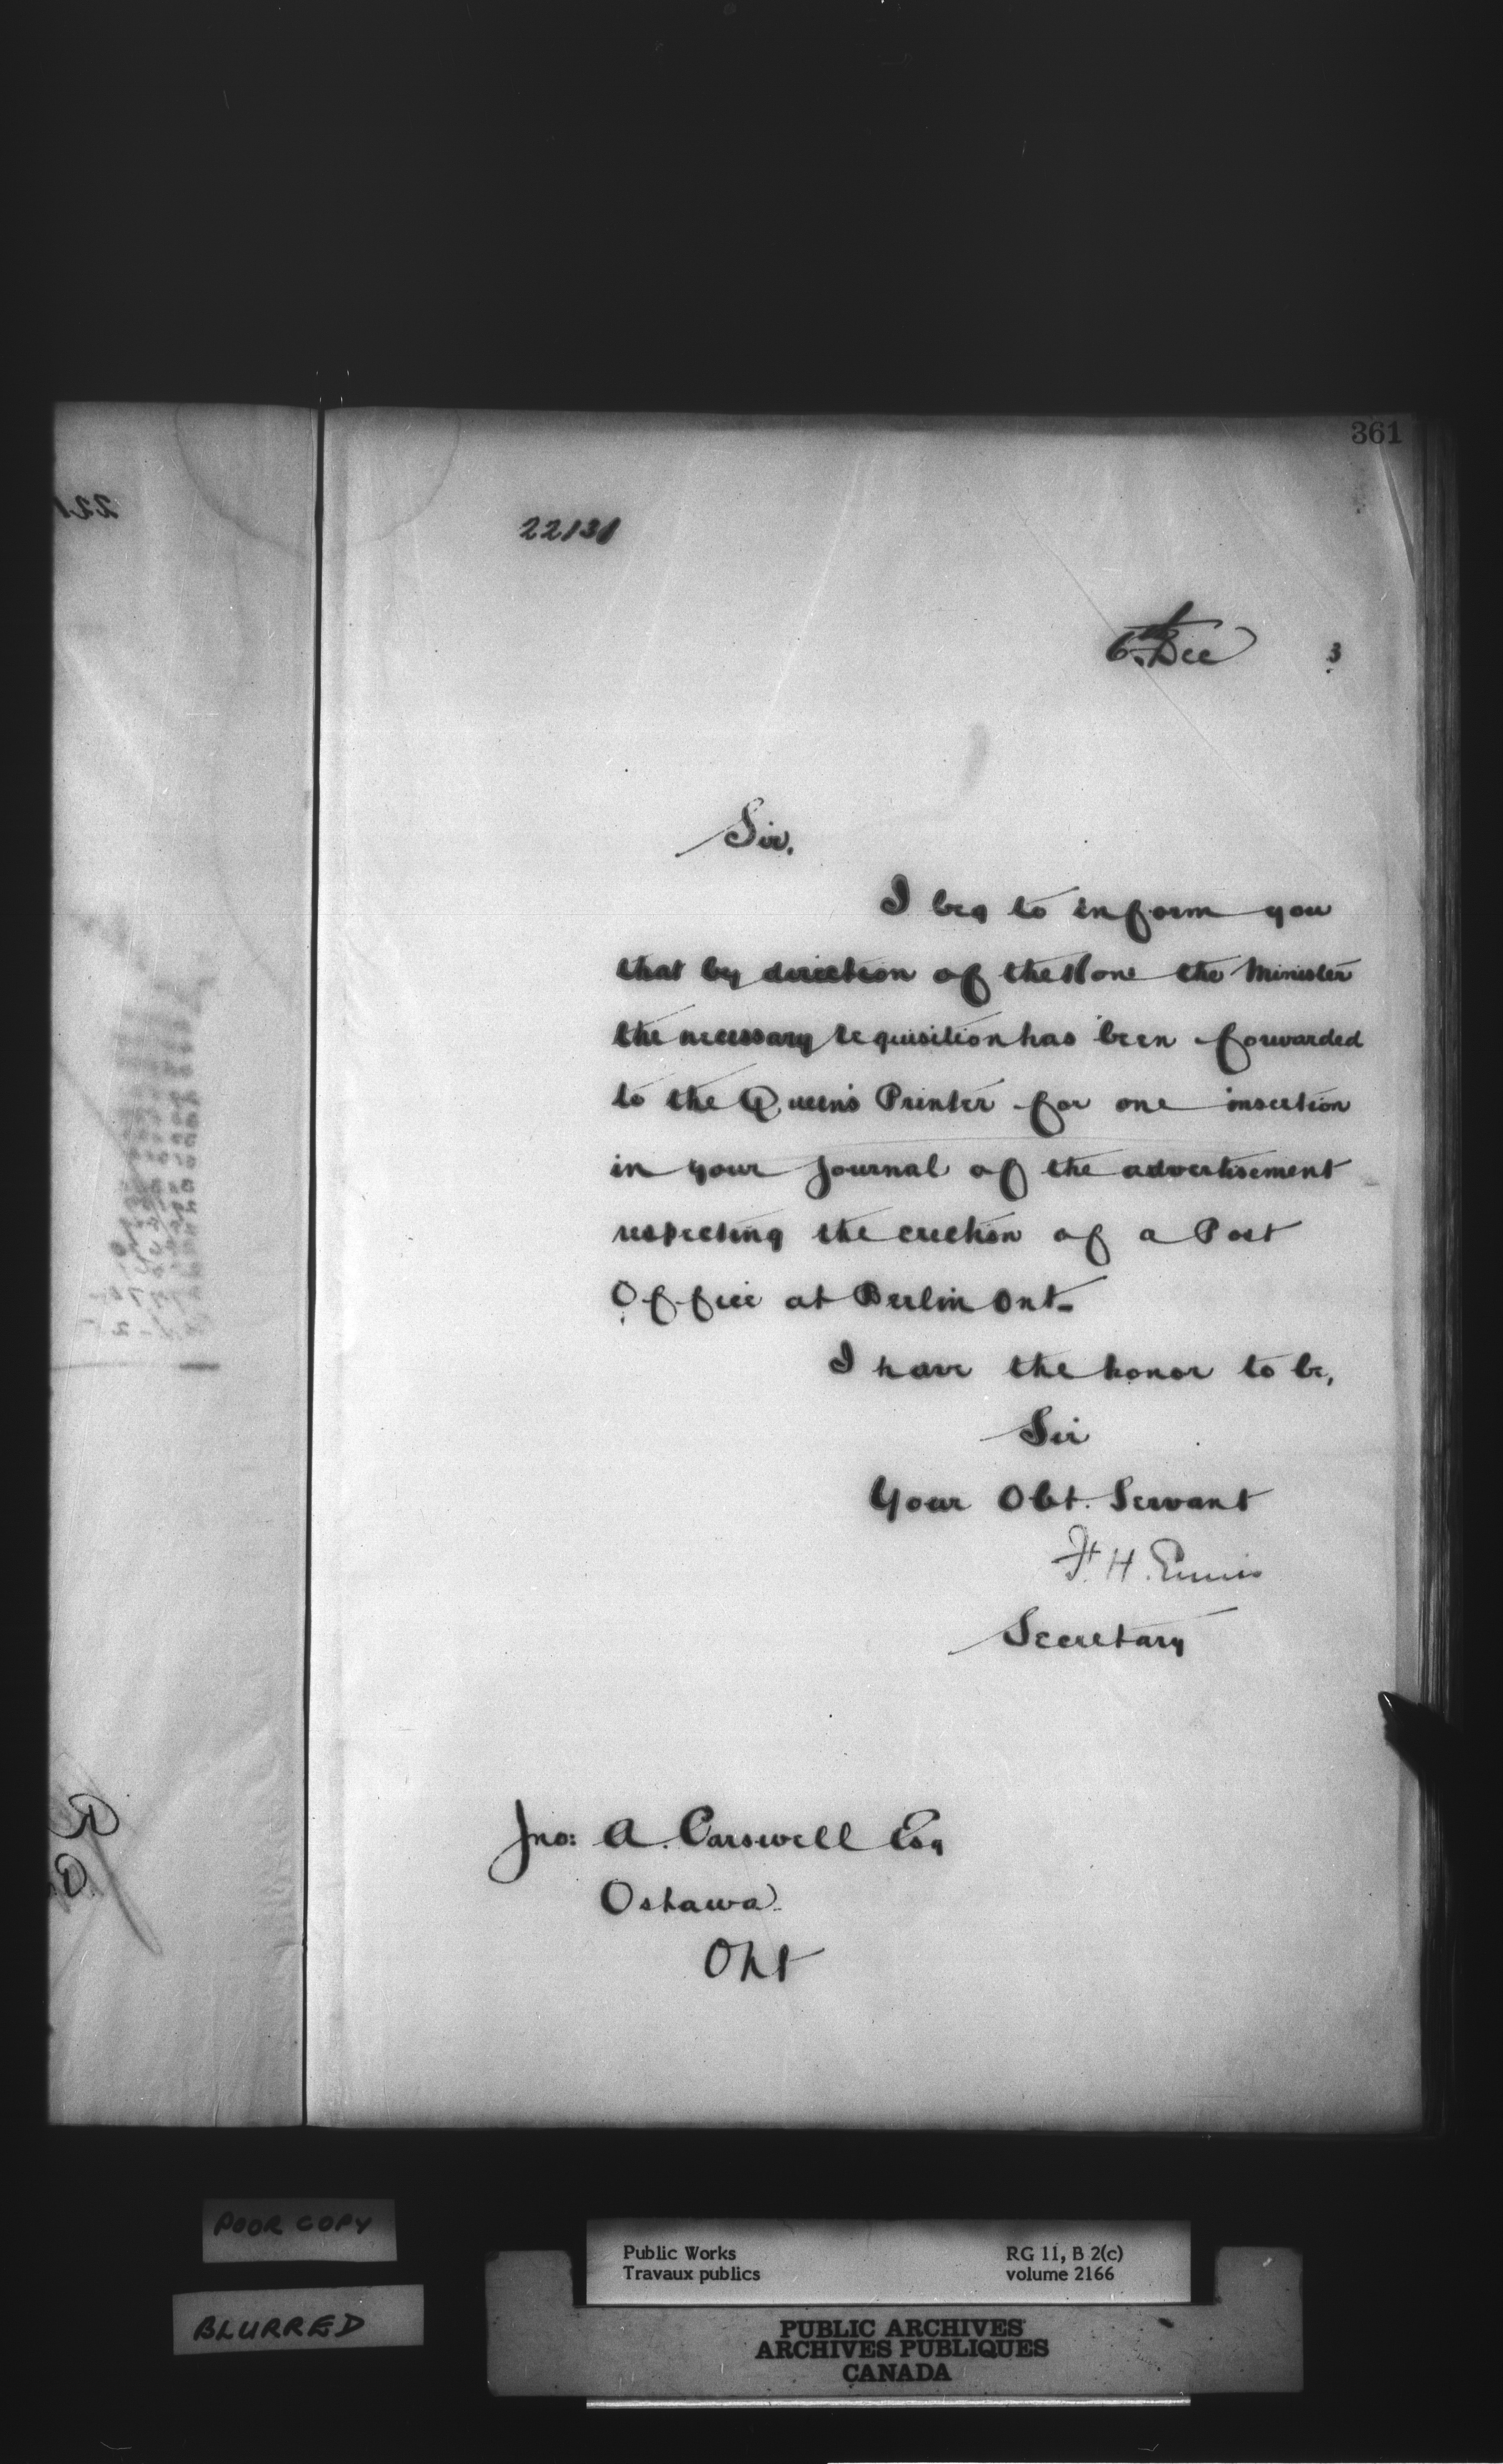 361
22131
6th Dec 3
Sir,
I beg to inform you
that by direction of the Hone the Minister
the necessary requisition has been forwarded
to the Queen's Printer for one insertion
in your Journal of the advertisement
respecting the erection of a Post
Office at Berlin Ont-
I have the honor to be,
Sir
Your Obt. Servant
F. H. Ennis
Secretary
Jno: A. Carswell Esq
Oshawa
Ont
POOR COPY
BLURRED
Public Works RG 11, B 2(c)
Travaux publics volume 2166
PUBLIC ARCHIVES
ARCHIVES PUBLIQUES
CANADA